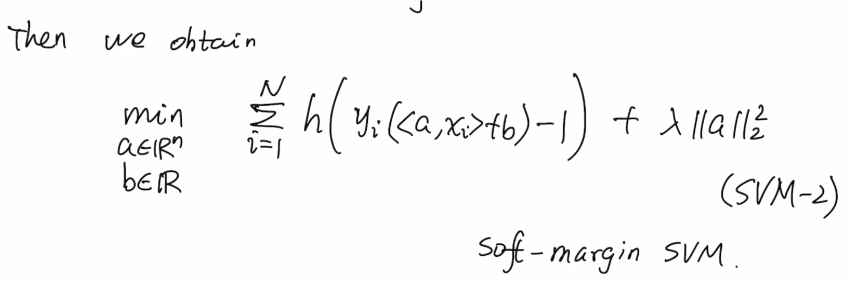 Then we obtain
min Σ_{i=1}^{N} h(y_i(<a,x_i>+b)-1) + λ||a||_2^2
a∈ℝⁿ
b∈ℝ
(SVM-2)
soft-margin SVM.